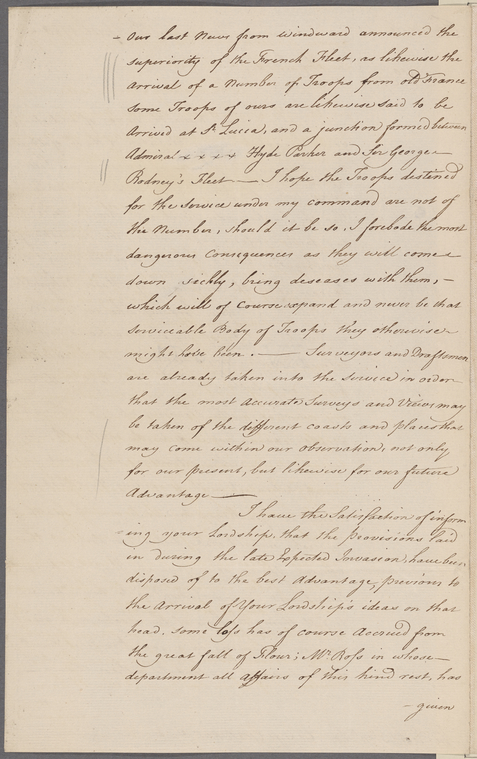 - Our last News from windward announced the
Superiority of the French Fleet, as likewise the
Arrival of a Number of Troops from old France
some Troops of ours are likewise said to be
Arrived at St Lucia, and a junction formed between
Admiral x x x x Hyde Parker and Sir George
Rodney's Fleet — I hope the Troops destined
for the Service under my command are not of
the Number, should it be so, I forebode the most
dangerous Consequences as they will come
down sickly, bring deseases with them, -
which will of Course expand and never be that
serviceable Body of Troops they otherwise
might have been. — Surveyors and Draftsmen
are already taken into the service in order
that the most Accurate Surveys and Views may
be taken of the different coasts and places that
may come within our observation, not only
for our present, but likewise for our future
Advantage —
I have the Satisfaction of inform
ing your Lordship, that the provisions laid
in during the late Expected Invasion, have been
disposed of to the best Advantage, previous to
the Arrival of Your Lordship's ideas on that
head. Some loss has of course Accrued from
the great fall of Flour; Mr. Ross in whose
department all affairs of this kind rest, has
- given